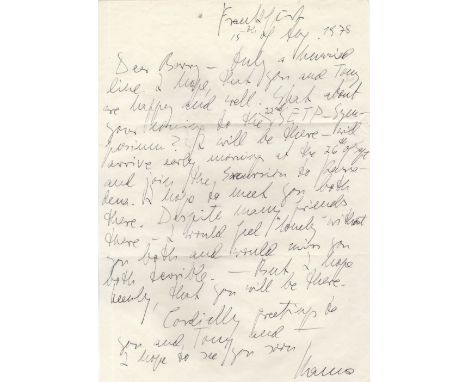 Frankfurt
15th of Aug. 1978
Dear Barry – Only a hurried
line. I hope, that you and Tony
are happy and well. What about
your coming to the 22nd SETP-Sym-
posium? I will be there – will
arrive early morning at the 26th of
and join the, to
I hope to meet you both
there. Despite many friends
there I would feel "lonely" without
you both and would miss you
both terrible. — But I hope
, that you will be there.
Cordially greetings to
you and Tony and
I hope to see you soon
Hanna